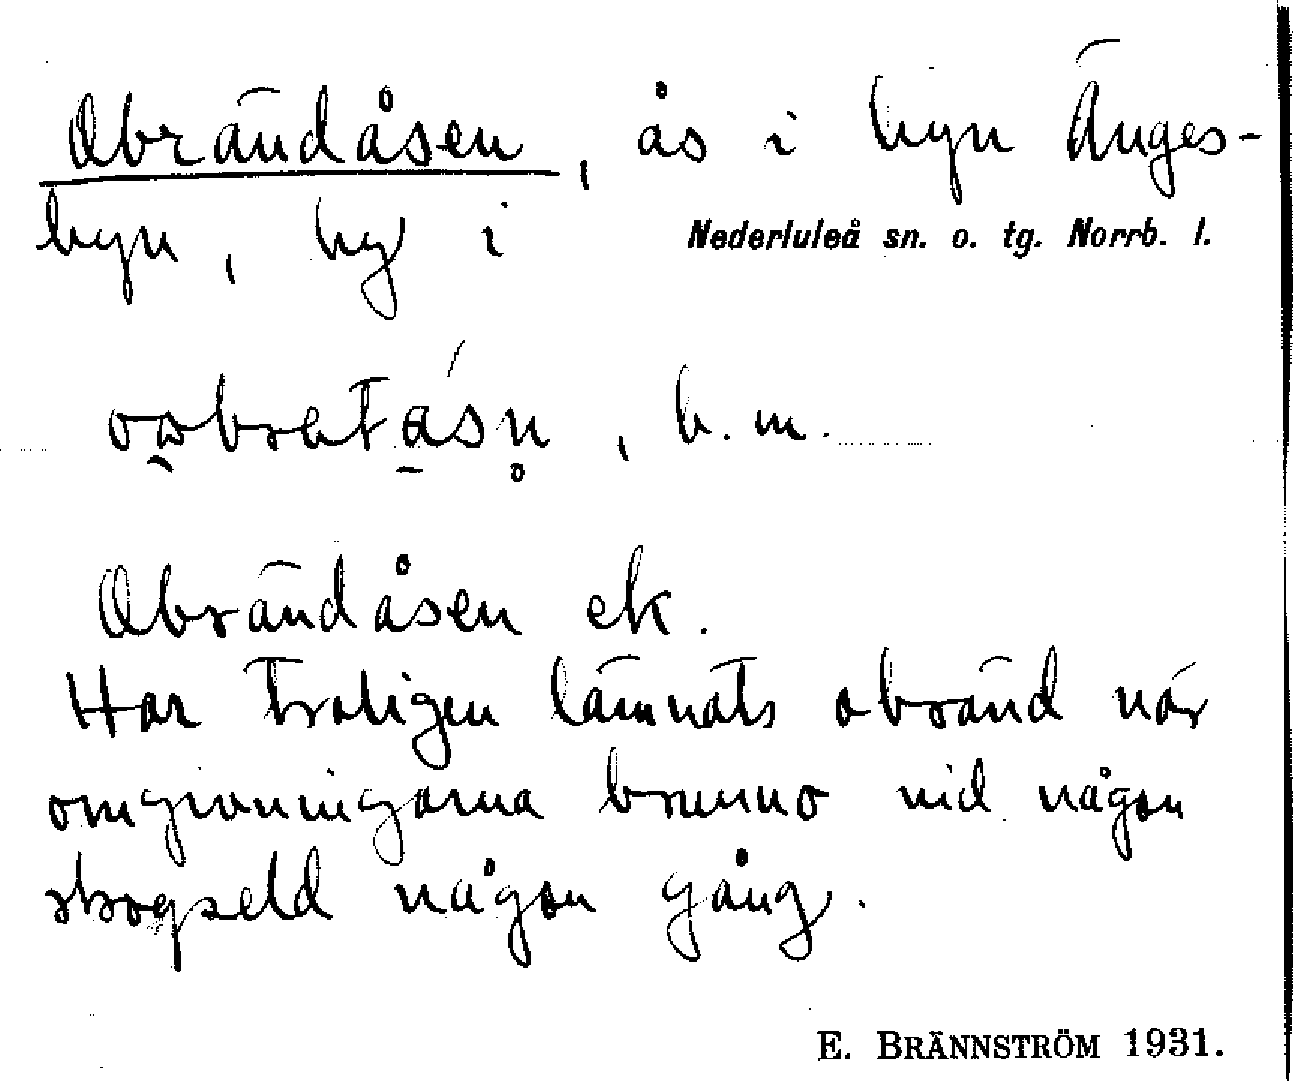 Obrändåsen, ås i byn Änges-
byn, by i Nederluleå sn. o. tg. Norrb. l.
b. m.
Obrändåsen ek.
Har troligen lämnats obränd när
omgivningarna brunno vid någon
skogseld någon gång.
E. BRÄNNSTRÖM 1931.